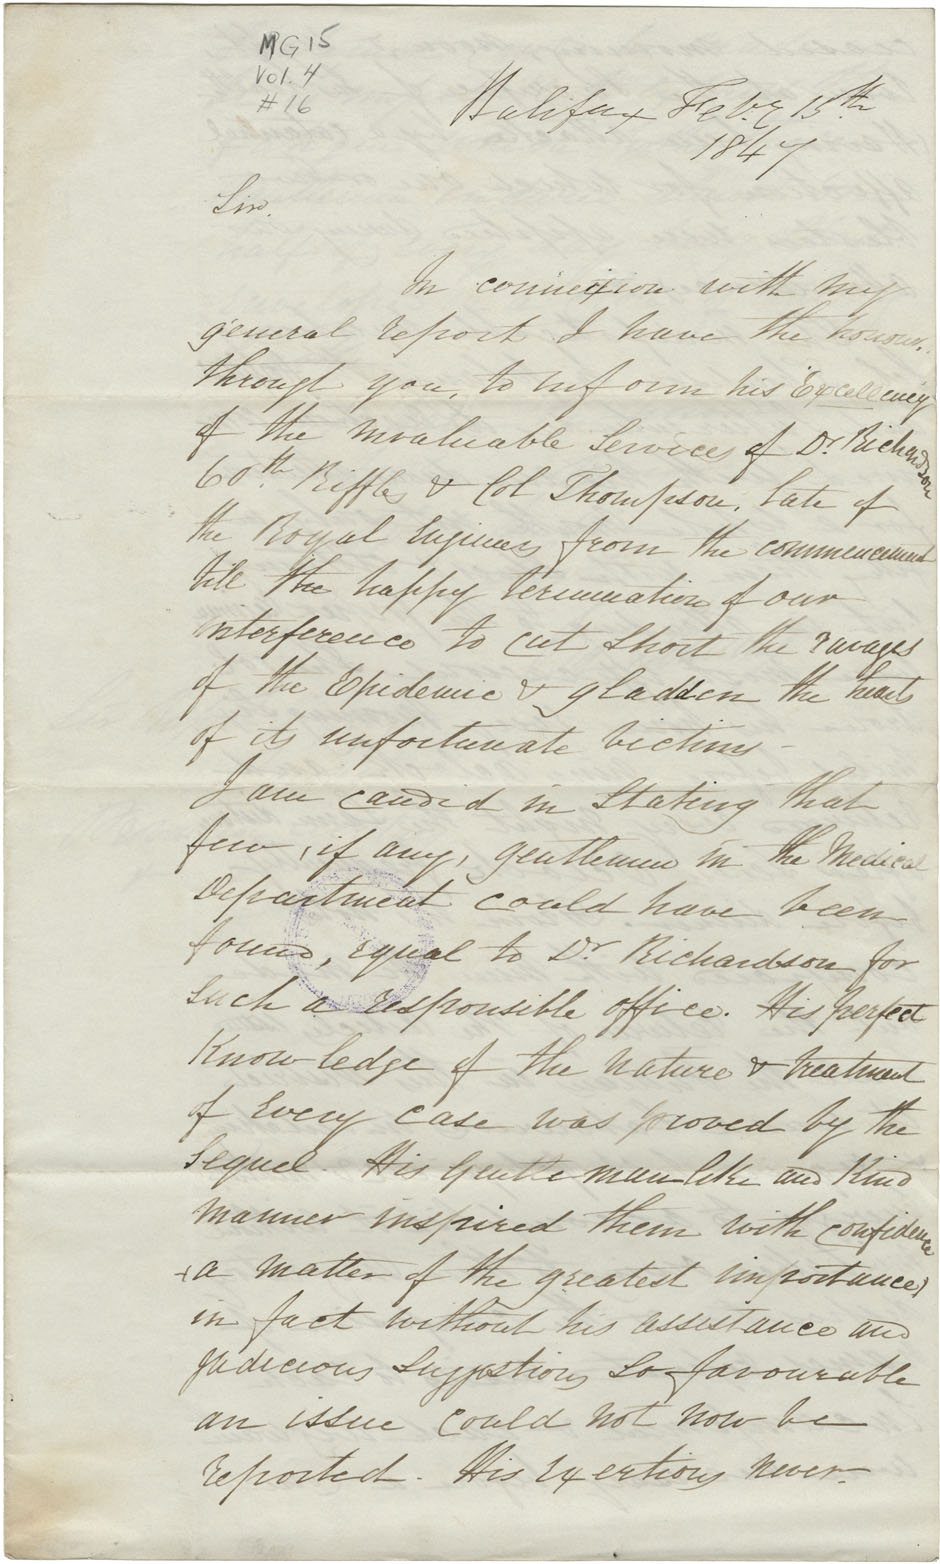 MG15
Vol. 4
#16
Halifax Feby 15th
1847
Sir.
In connexion with my
general report I have the honour,
through you, to inform his Excellency
of the invaluable Services of Dr. Richardson
60th Riffles & Col Thompson, late of
the Royal Engineers from the commencement
till the happy termination of our
interference to cut short the ravages
of the Epidemic & gladden the hearts
of its unfortunate victims -
I am candid in Stating that
few, if any, gentlemen in the Medical
Department could have been
found, equal to Dr Richardson for
such a responsible office. His perfect
Knowledge of the nature & treatment
of Every case was proved by the
Sequel. His gentlemanlike and Kind
manner inspired them with confidence
(a matter of the greatest importance)
in fact without his assistance and
judicious Suggestions So favourable
an issue could not now be
reported. His exertions never